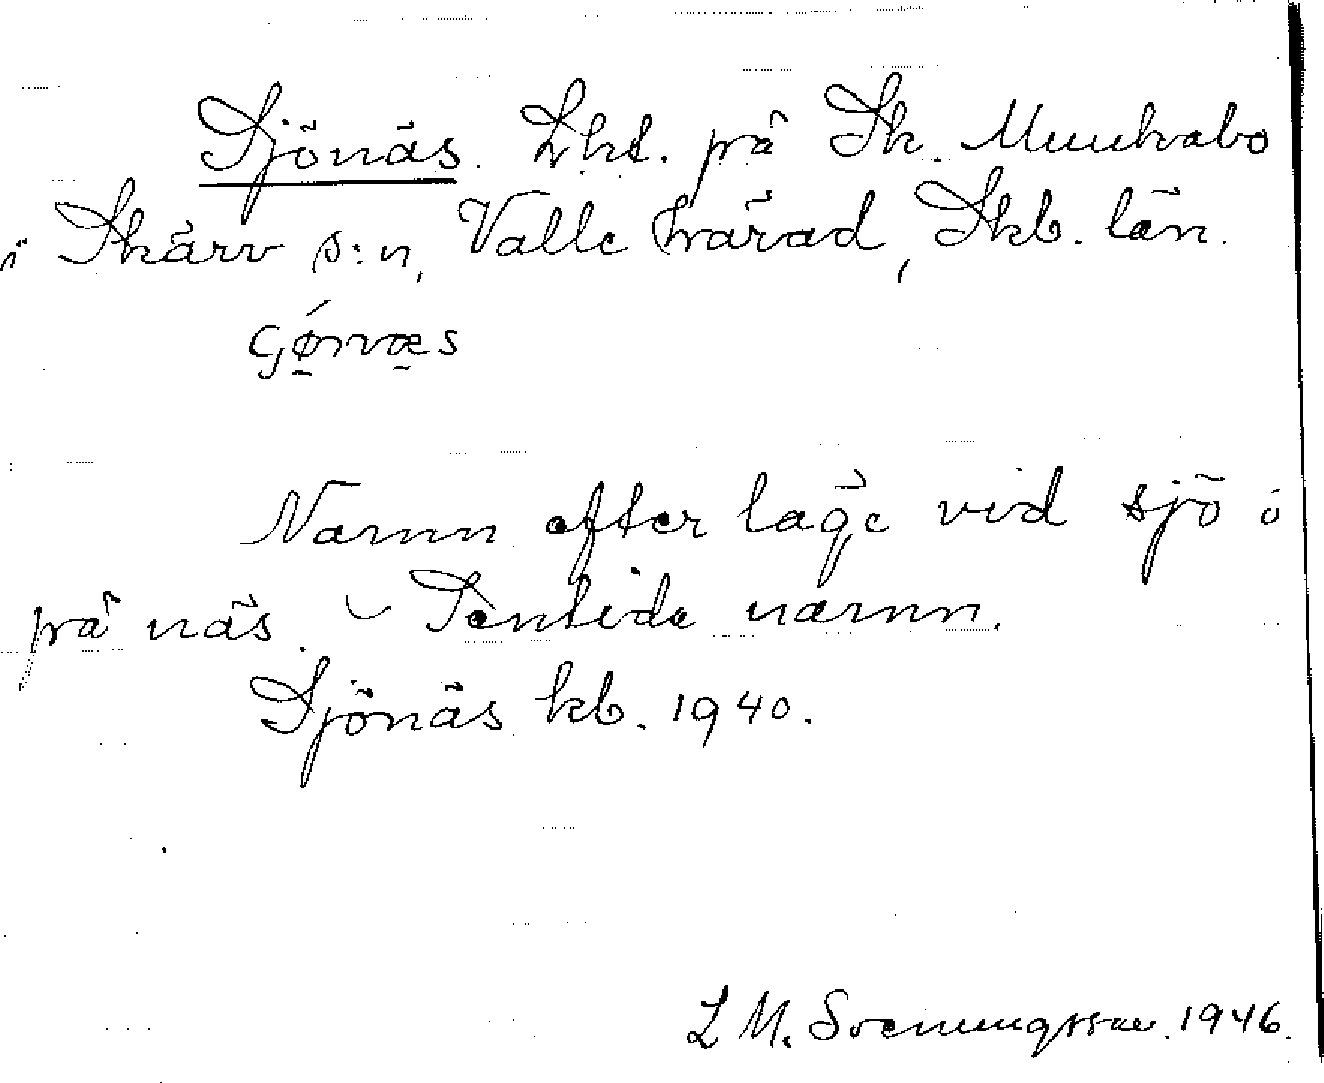 Sjönäs. Lht. på Sk. Munkabo
i Skärv s:n, Valle härad, Skb. län.
Namn efter läge vid sjö o
på näs. – Sentida namn.
Sjönäs kb. 1940.
L M. Svenungsson. 1946.